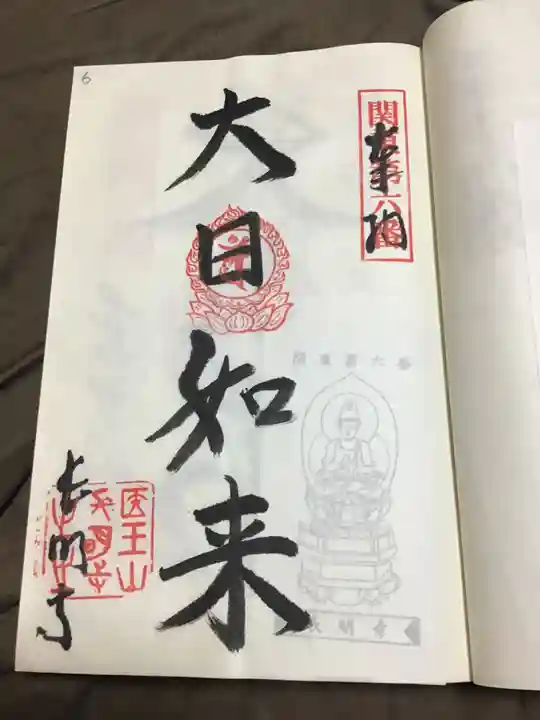 6
関東第六番
奉拝
大日如来
長明寺
医王山
長明寺
関東第六番
長明寺